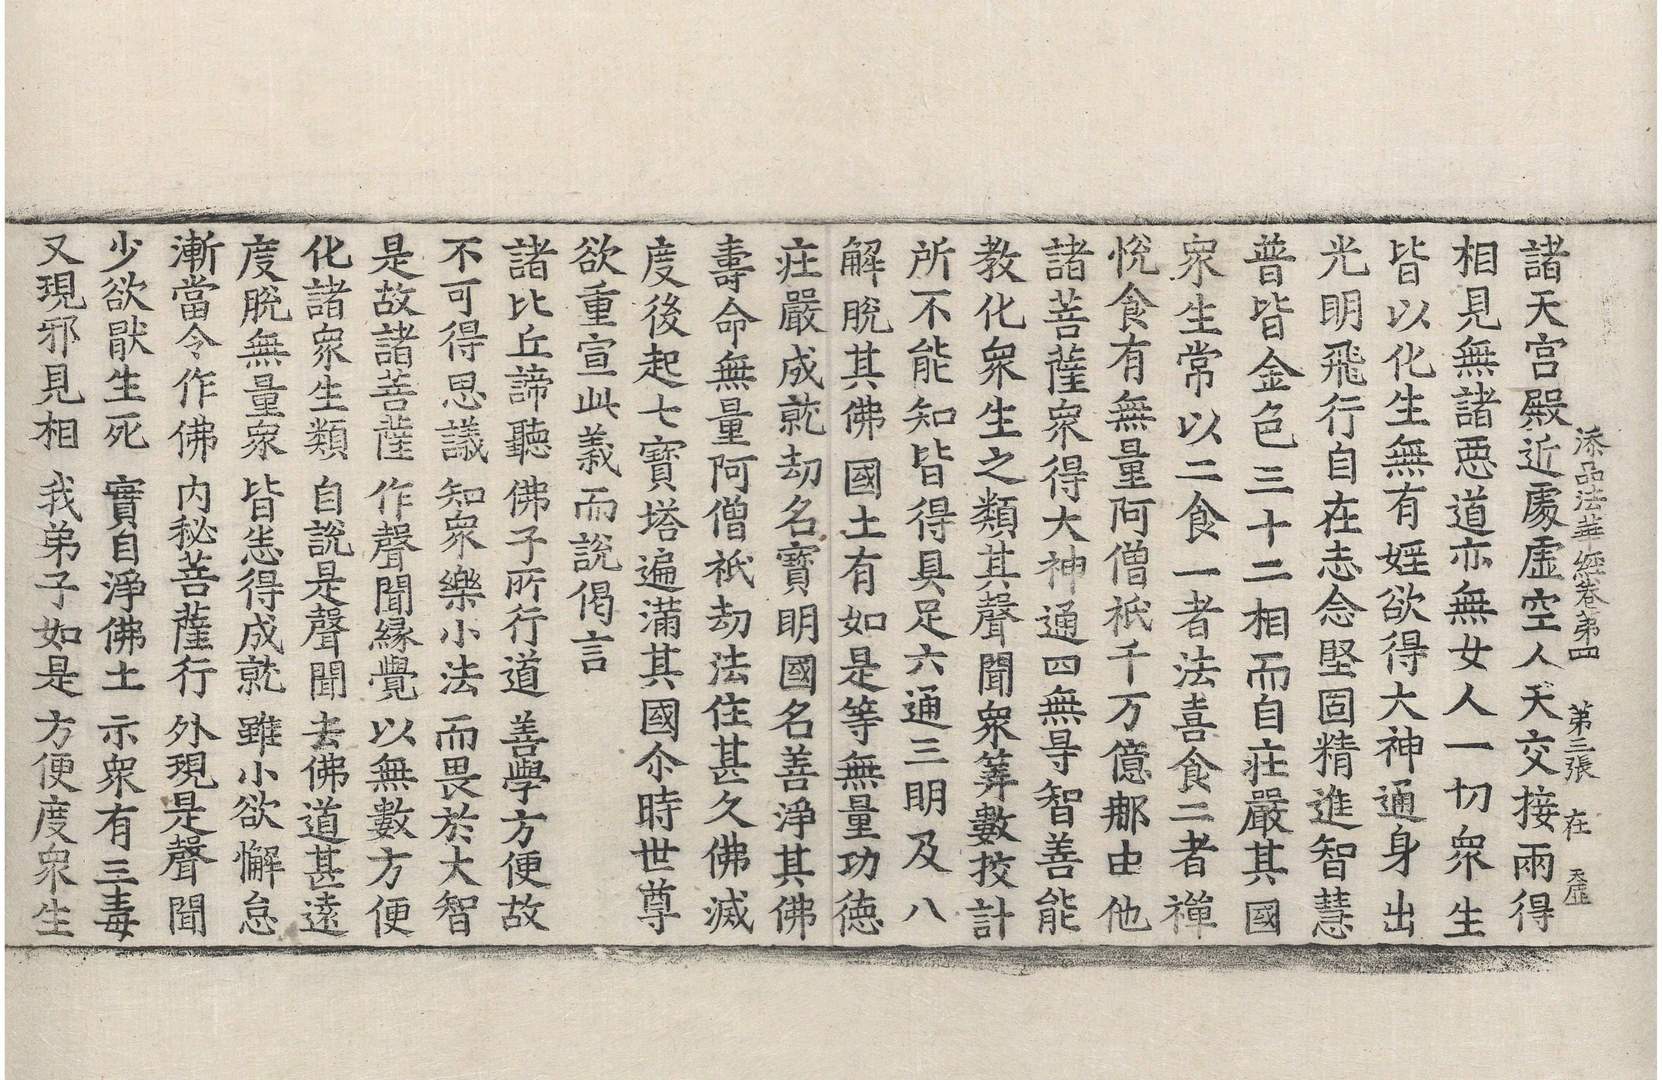 添品法華經卷第四　第三張　在　天虛
諸天宮殿近處虛空人天交接兩得
相見無諸惡道亦無女人一切衆生
皆以化生無有婬欲得大神通身出
光明飛行自在志念堅固精進智慧
普皆金色三十二相而自莊嚴其國
衆生常以二食一者法喜食二者禪
悅食有無量阿僧祇千万億郍由他
諸菩薩衆得大神通四無㝵智善能
教化衆生之類其聲聞衆筭數挍計
所不能知皆得具足六通三明及八
解脫其佛國土有如是等無量功德
莊嚴成就劫名寶明國名善淨其佛
壽命無量阿僧祇劫法住甚久佛滅
度後起七寶塔遍滿其國尒時世尊
欲重宣此義而說偈言
諸比丘諦聽　佛子所行道　善學方便故
不可得思議　知衆樂小法　而畏於大智
是故諸菩薩　作聲聞緣覺　以無數方便
化諸衆生類　自說是聲聞　去佛道甚遠
度脫無量衆　皆悉得成就　雖小欲懈怠
漸當令作佛　內秘菩薩行　外現是聲聞
少欲猒生死　實自淨佛土　示衆有三毒
又現邪見相　我弟子如是　方便度衆生